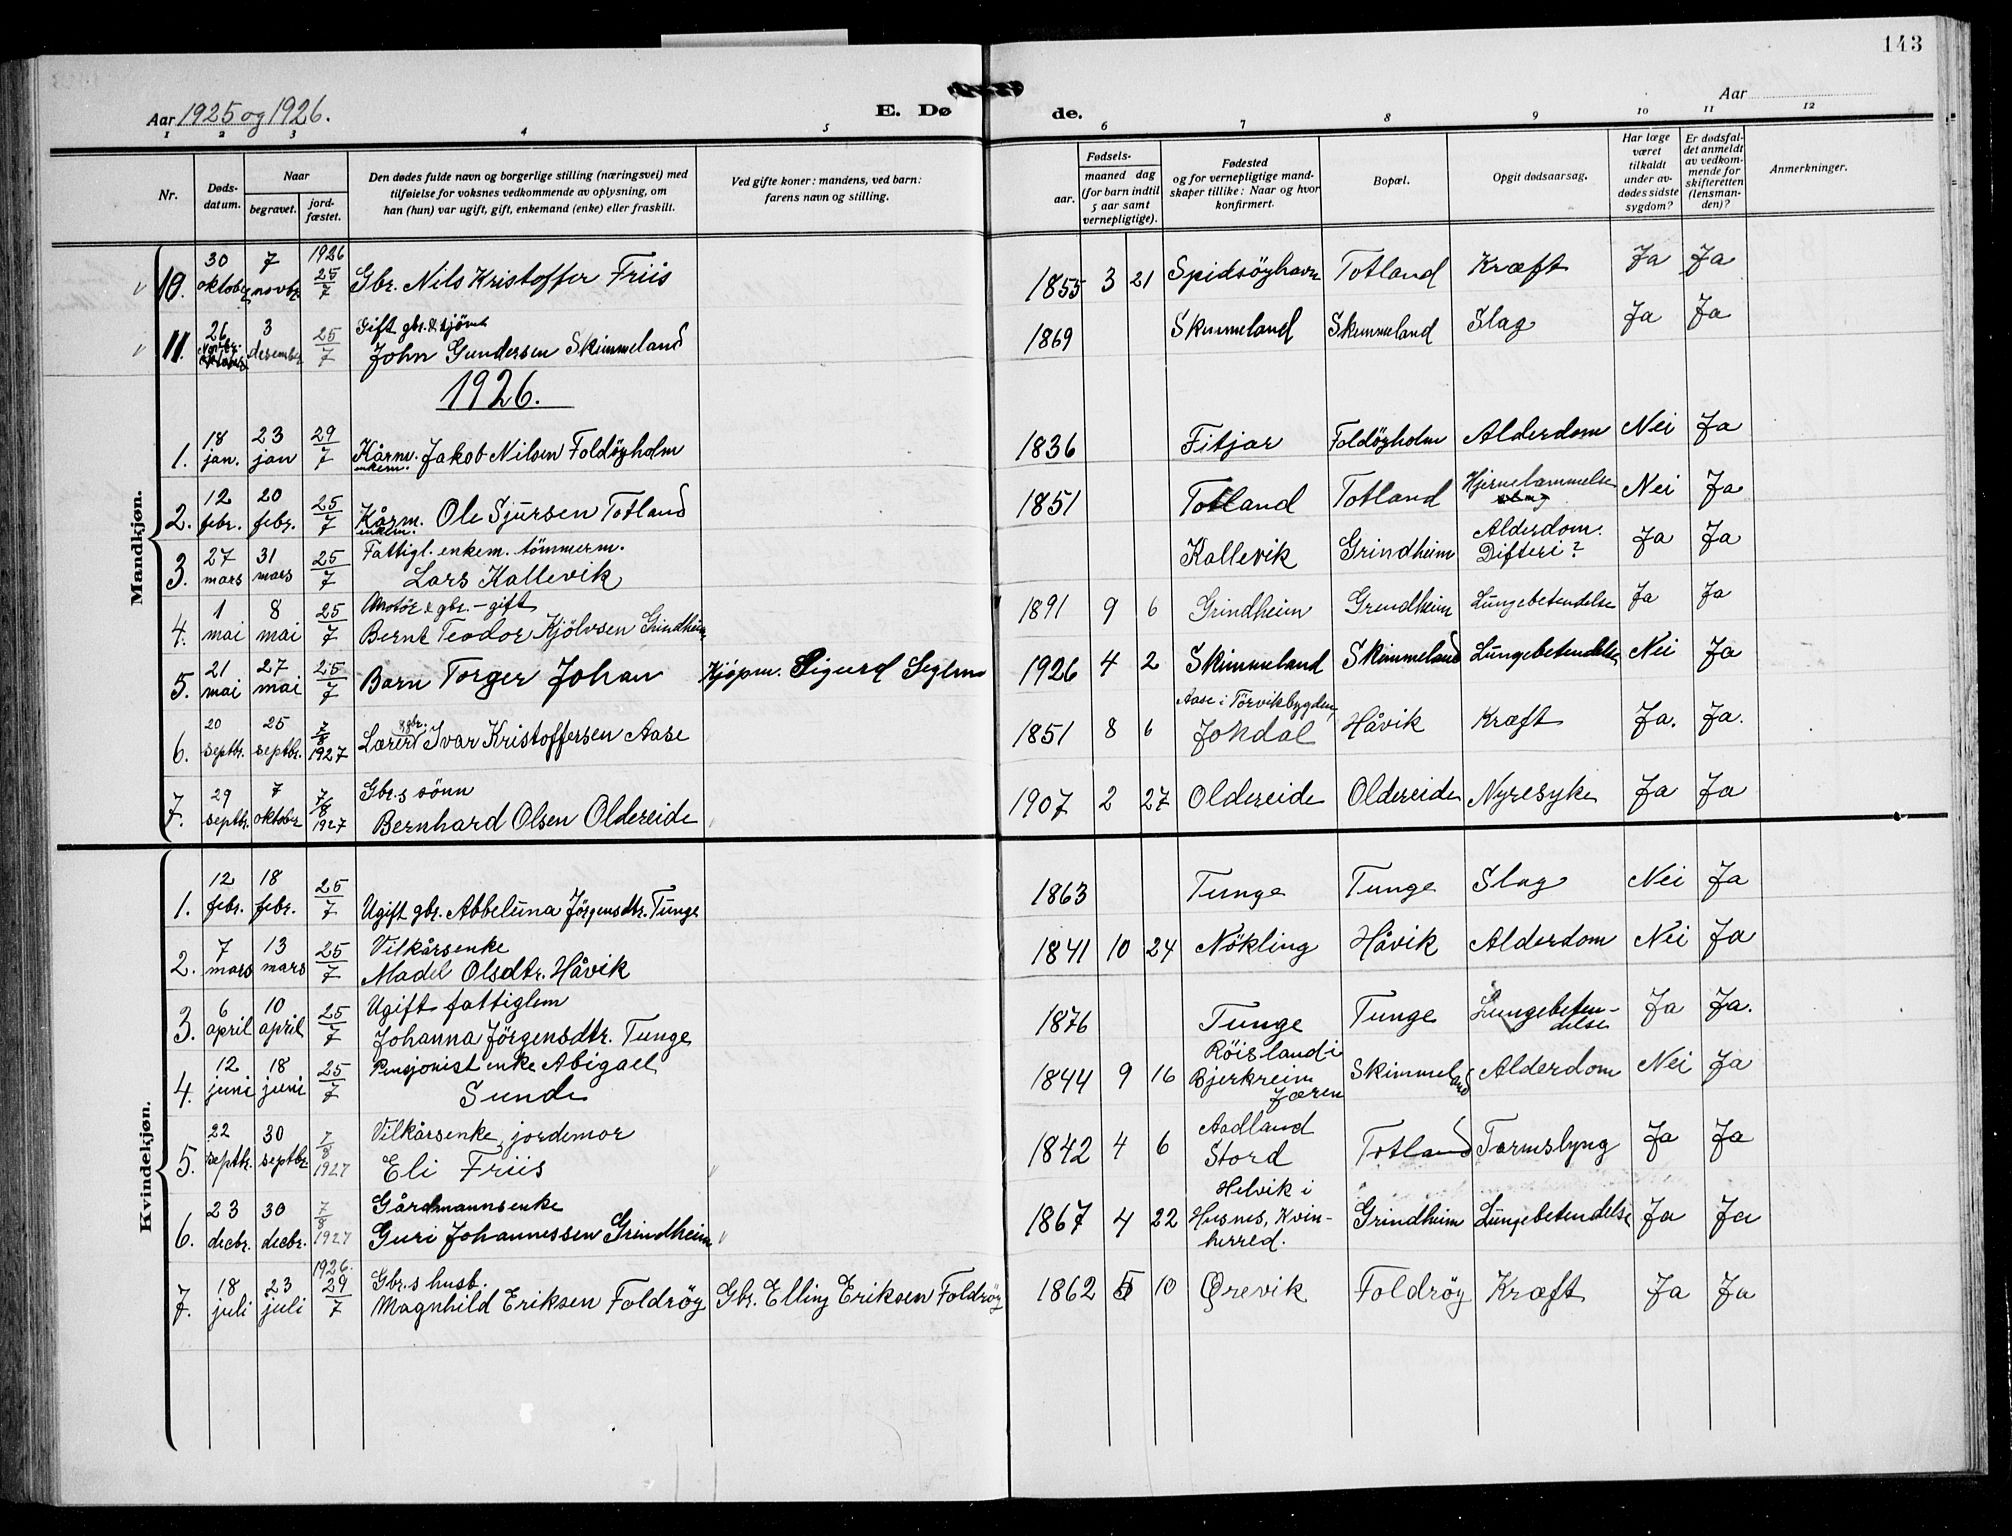 143
Aar 1925 og 1926.
E. Dø de.
Aar
1 2 3 4 5 6 7 8 9 10 11 12
Nr.
Døds-datum.
Naar
begravet.
jord-fæstet.
Den dødes fulde navn og borgerlige stilling (næringsvei) med
tilføielse for voksnes vedkommende av oplysning, om
han (hun) var ugift, gift, enkemand (enke) eller fraskilt.
Ved gifte koner: mandens, ved barn:
farens navn og stilling.
Fødsels-
aar. maaned dag
(for barn indtil
5 aar samt
vernepligtige).
Fødested
og for vernepligtige mand-
skaper tillike: Naar og hvor
konfirmert.
Bopæl.
Opgit dødsaarsag.
Har læge
været
tilkaldt
under av-
dødes sidste
sygdom?
Er dødsfal-
det anmeldt
av vedkom-
mende for
skifteretten
(lensman-
den)?
Anmerkninger.
Mandkjøn.
10. 30 oktober 7 novbr. 1926 25/7 Gbr. Nils Kristoffer Friis 1855 3 21 Spidsöyhavn Totland Kræft Ja Ja
11. 26 Novbr. 3 desember 25/7 Gift gbr. & sjöm.
John Gundersen Skimmeland 1869 Skimmeland Skimmeland Slag Ja Ja
1926.
1. 18 jan. 23 jan 29/7 Kårm. enkem. Jakob Nilsen Foldöyholm 1836 Fitjar Foldöyholm Alderdom Nei Ja
2. 12 febr. 20 febr. 25/7 Kårm. enkem. Ole Sjursen Totland 1851 Totland Totland Hjernelammelse Nei Ja
3. 27 mars 31 mars 25/7 Fattigl. enkem. tömmerm.
Lars Kallevik Kallevik Grindheim Alderdom. Difteri? Ja Ja
4. 1 mai 8 mai 25/7 & gbr. – gift
Bernt Teodor Kjölvsen Grindheim 1891 9 6 Grindheim Grindheim Lungebetendelse Ja Ja
5. 21 mai 27 mai 25/7 Barn Torger Johan Kjöpm. Sigurd Seglem 1926 4 2 Skimmeland Skimmeland Lungebetendelse Nei Ja
6. 20 septbr. 25 septbr. 7/8 1927 Lærer & gbr. Ivar Kristoffersen Aase 1851 8 6 Aase i Törvikbygden, Jondal Håvik Kræft Ja. Ja.
7. 29 septbr. 7 oktober 7/8 1927 Gbr.s sönn
Bernhard Olsen Oldereide 1907 2 27 Oldereide Oldereide Nyresyke Ja Ja
Kvindekjøn.
1. 12 febr. 18 febr. 25/7 Ugift gbr. Abbeluna Jörgensdtr. Tunge 1863 Tunge Tunge Slag Nei Ja
2. 7 mars 13 mars 25/7 Vilkårsenke
Madel Olsdtr. Håvik 1841 10 24 Nökling Håvik Alderdom Nei Ja
3. 6 april 10 april 25/7 Ugift fattiglem
Johanna Jörgensdtr. Tunge 1876 Tunge Tunge Lungebeten-delse Ja Ja.
4. 12 juni 18 juni 25/7 Pensjonist enke Abigael
Sunde 1844 9 16 Röisland i Bjerkreim Jæren Skimmeland Alderdom Nei Ja
5. 22 septbr. 30 septbr 7/8 1927 Vilkårsenke, jordemor
Eli Friis 1842 4 6 Aadland Stord Totland Tarmslyng Ja Ja
6. 23 decbr. 30 decbr. 7/8 1927 Gårdmannsenke
Guri Johannessen Grindheim 1867 4 22 Helvik i Husnes, Kvin-herred. Grindheim Lungebetendelse Ja Ja
7. 18 juli 23 juli 1926. 29/7 Gbr.s husb.
Magnhild Eriksen Foldröy Gbr. Elling Eriksen Foldröy 1862 5 10 Örevik Foldröy Kræft Ja Ja